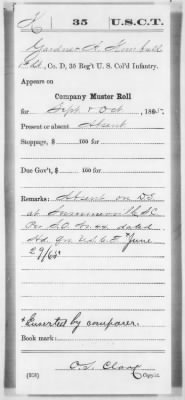 K | 35 | U.S.C.T.
Gardner A. Kimball
Co. D, 35 Reg't U. S. Col'd Infantry.
Appears on
Company Muster Roll
for Sept & Oct, 1865.
Present or absent Absent
Stoppage, $ 100 for
Due Gov't, $ 100 for
Remarks: Absent on D.S.
at Summerville S.C.
Per S.O. No. 44 dated
Hd. Qrs. U.S. C.T. June
29/65
* Inserted by comparer.
Book mark:
(358) Copyist.